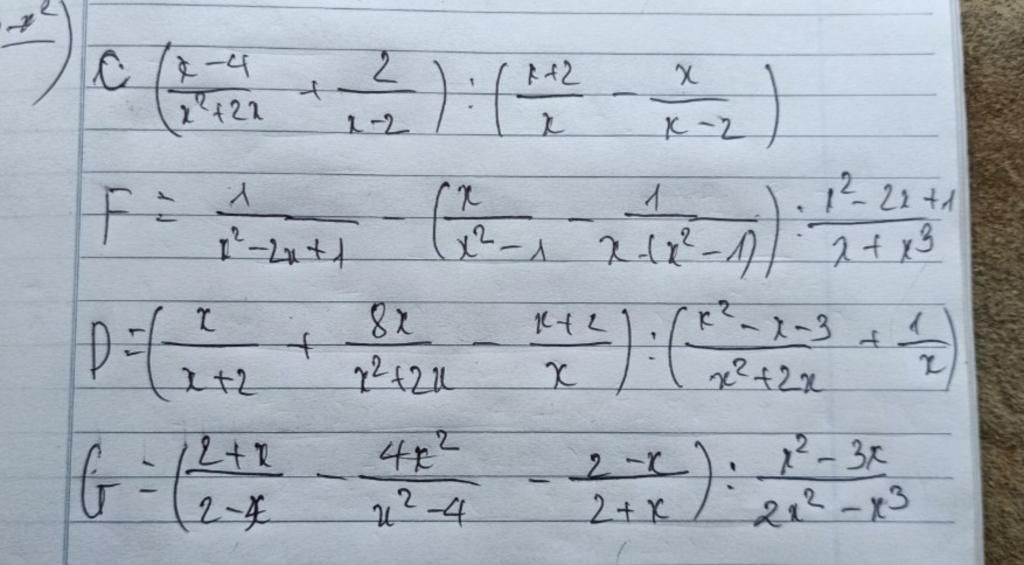 -x²)
C (x-4/x²+2x + 2/x-2) : (x+2/x - x/x-2)
F = 1/x²-2x+1 - (x/x²-1 - 1/x-(x²-1)) : x²-2x+1/x+x³
D = (x/x+2 + 8x/x²+2x - x+2/x) : (x²-x-3/x²+2x + 1/x)
G = (2+x/2-x - 4x²/x²-4 - 2-x/2+x) : x²-3x/2x²-x³